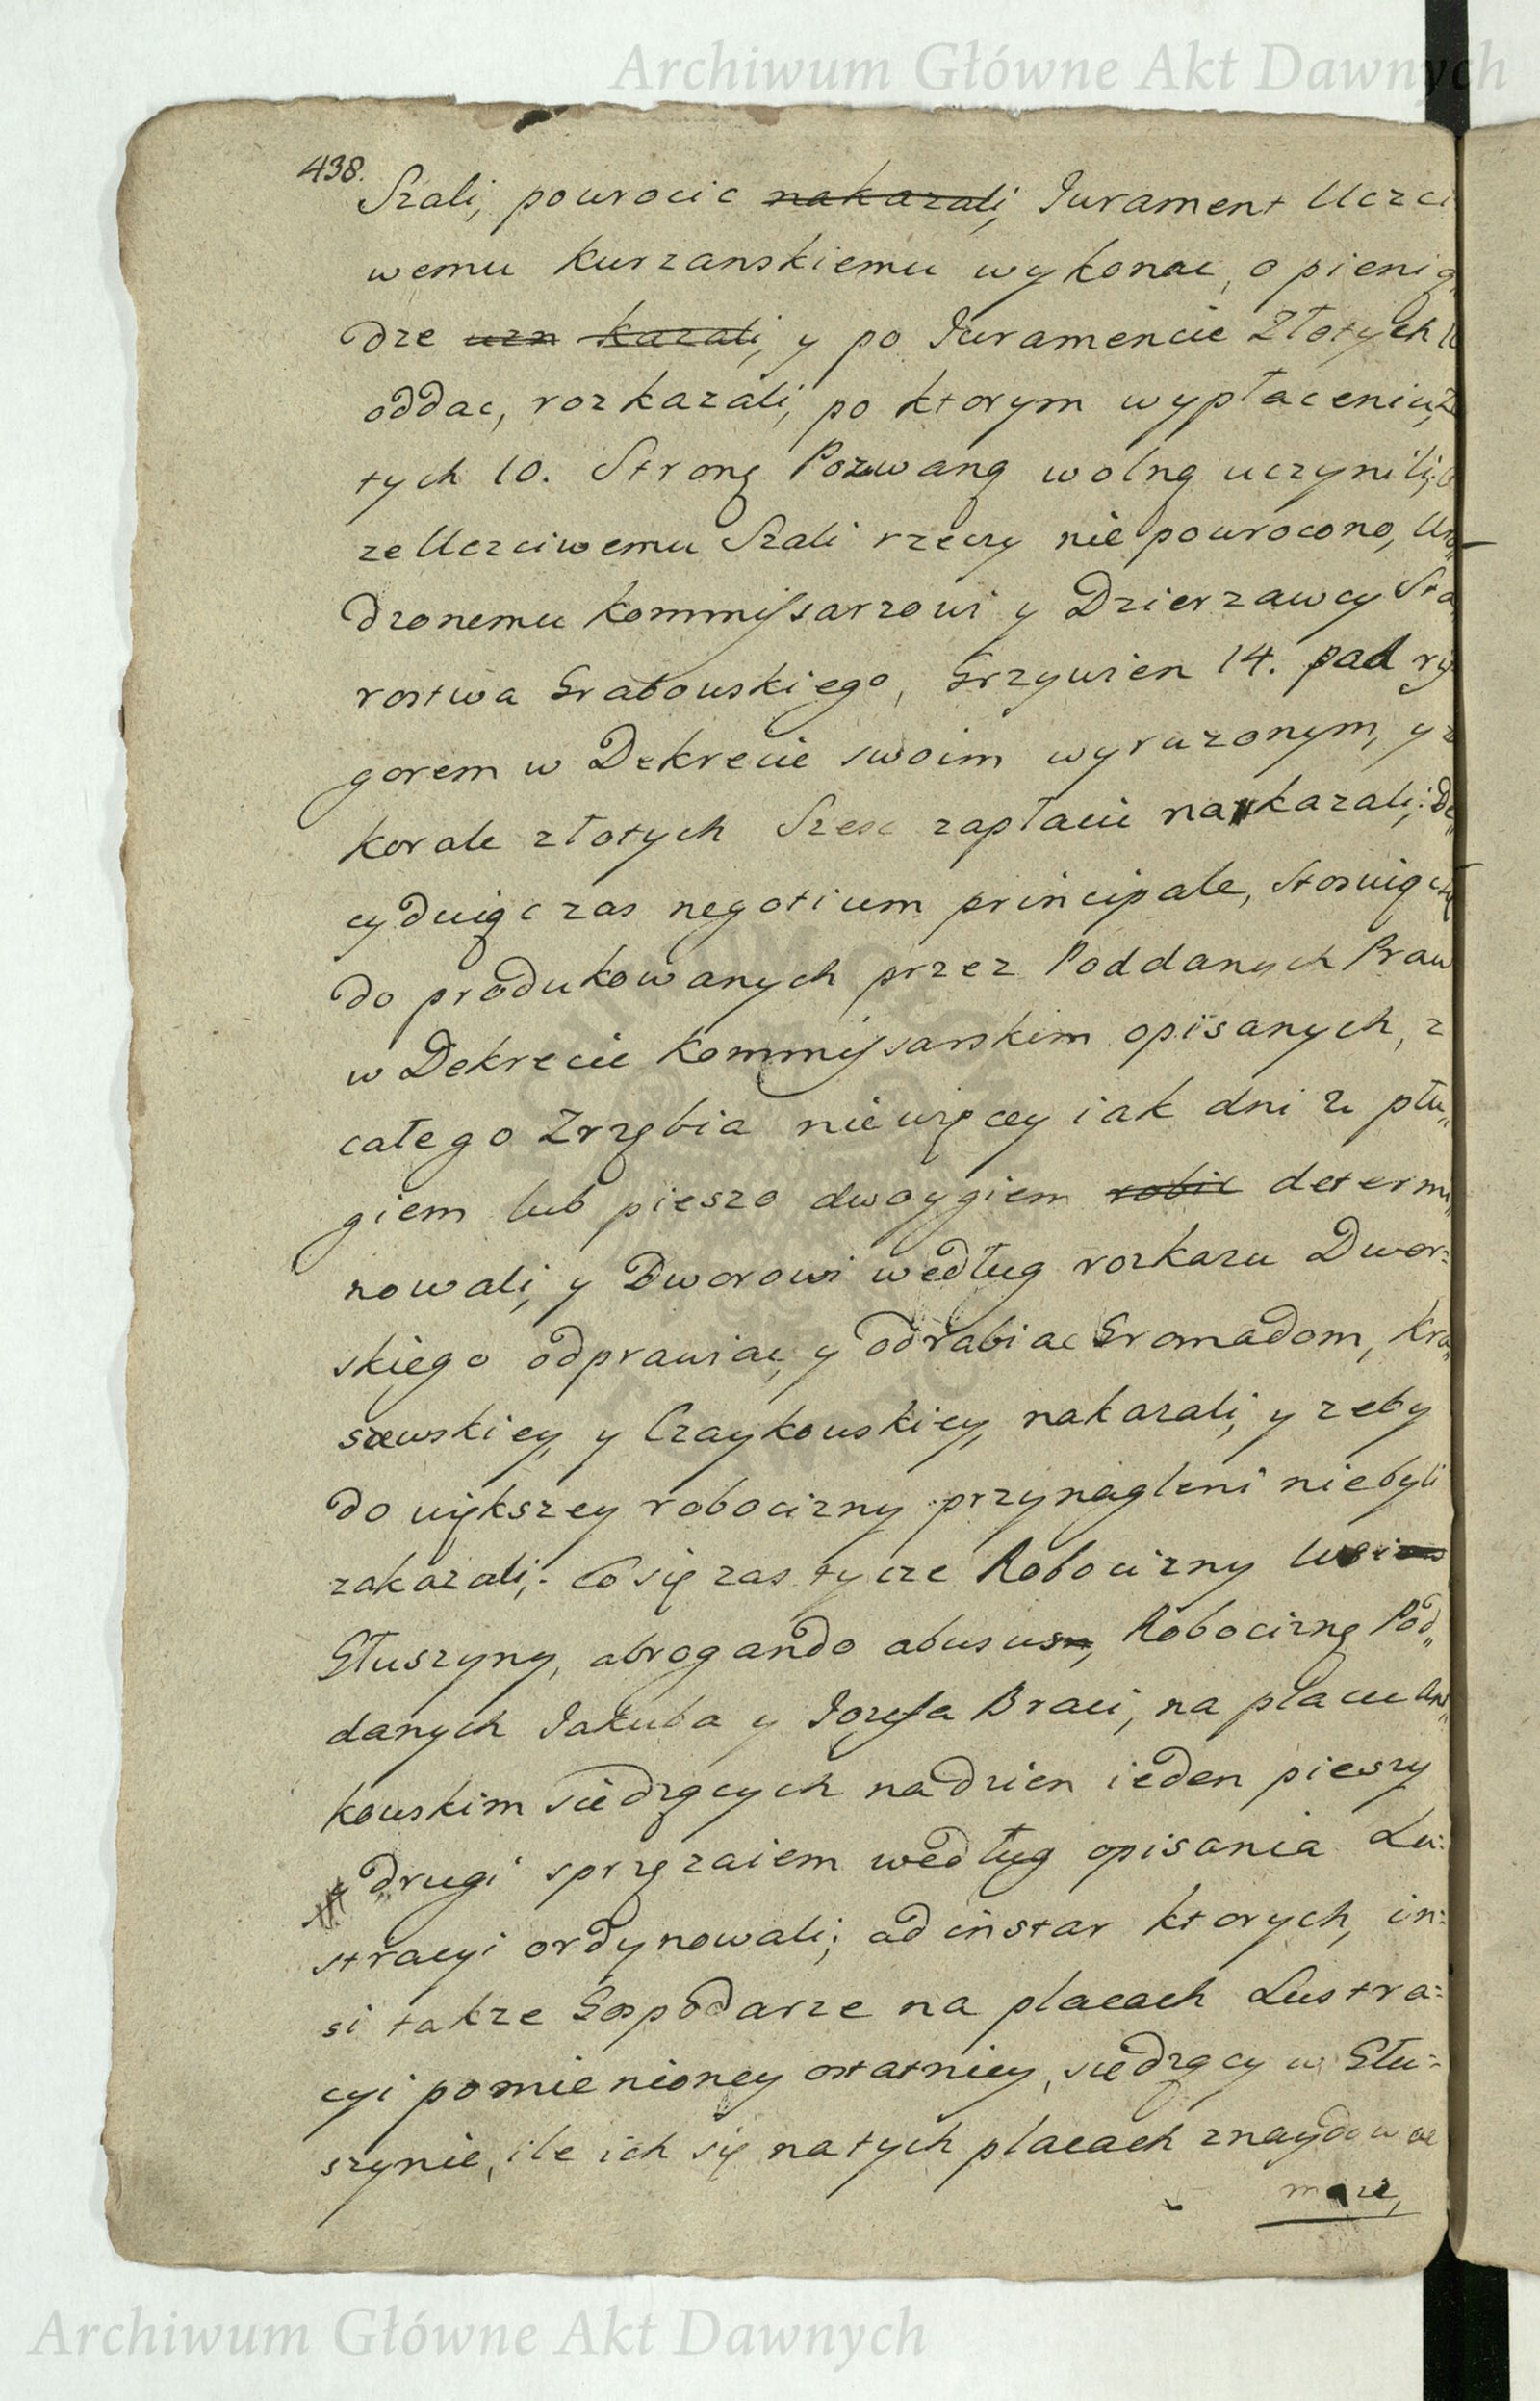 Archiwum Główne Akt Dawnych
438.
Szali, powrocic nakazali, Jurament Uczci
wemu Kurzanskiemu wykonac, o pienią
dze uzn kazali, y po Juramencie Złotych
oddac, rozkazali, po ktorym wypłaceniu,
tych 10. Stronę Pozwaną wolną uczynili;
ze Uczciwemu Szali rzeczy nie powrocono, Uro„
dzonemu Kommissarzowi y Dzierzawcy Sta
rostwa Grabowskiego, Grzywien 14. pod ry
gorem w Dekrecie swoim wyrazonym, y z
korale złotych Szesc zapłacic nakazali; De„
cyduiąc zas negotium principale, stosuiąc się
do produkowanych przez Poddanych Praw
w Dekrecie Kommissarskim opisanych, z
całego Zrzębia nie więcey iak dni 2. płu„
giem lub pieszo dwoygiem robic determi„
nowali, y Dworowi według rozkazu Dwor=
skiego odprawiac, y odrabiac Gromadom, Kra„
szewskiey, y Czaykowskiey, nakazali, y zeby
do większey robocizny przynagleni niebyli
zakazali; Co się zas tycze Robocizny Wsi
Głuszyny, abrogando abusus, Robociznę Pod„
danych Jakuba y Jozefa Braci, na placu
kowskim siedzących na dzien ieden pieszy
y drugi sprzęzaiem według opisania Lu=
stracyi ordynowali; ad instar ktorych, in=
si takze Gospodarze na placach Lustra=
cyi pomienioney ostatniey, siedzący w Głu=
szynie, ile ich się na tych placach znaydowac
moze,
Archiwum Główne Akt Dawnych